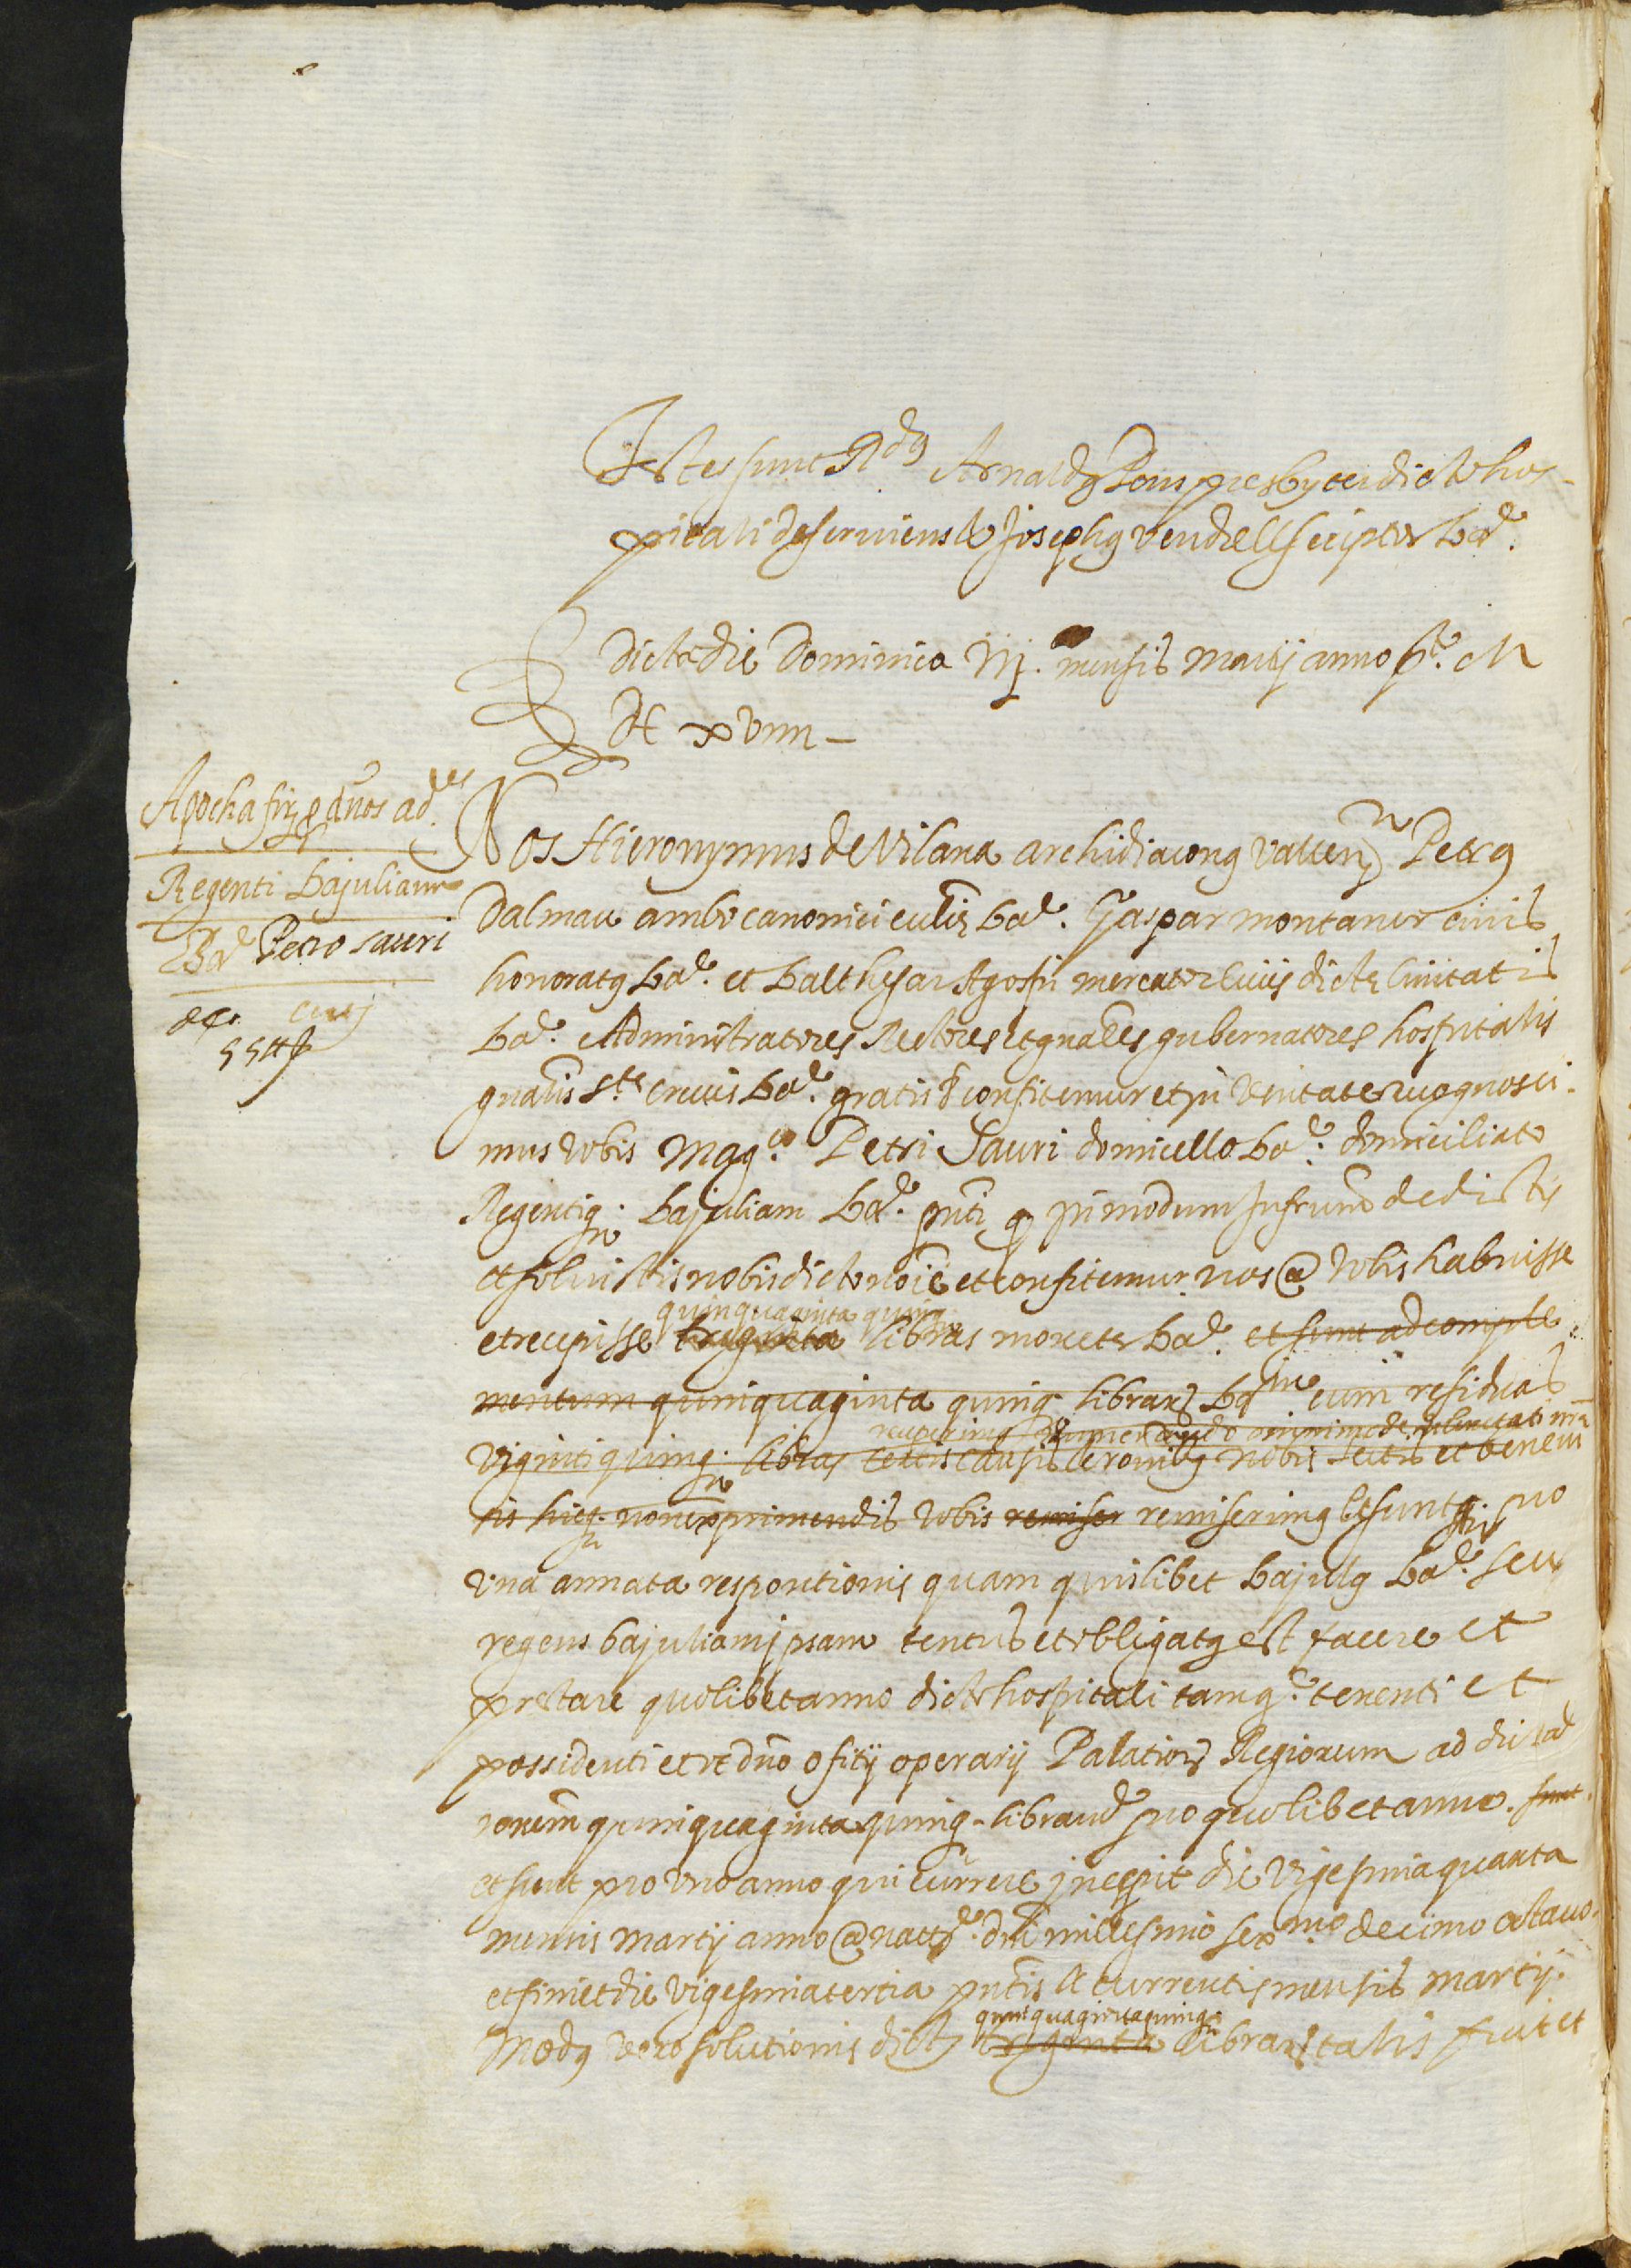 Testes sunt Rdus Arnaldus Pons presbyter dicto hos-
pitali deserviens et Josephus Vendrell scriptor bar.
Dicta die Dominica mensis martij anno pto. M
DC xviiii -
Apocha per dnos ad.res
Regenti bajuliam
Bar Petro Sauri
55 ff
Nos Hieronymus de Vilana archidiaconus vallen Petrus
Dalmau ambo canonici bar. Gaspar montaner civis
honoratus bar. et balthesar Agosti mercator civis dicte civitatis
bar. Administratores Rectores et gnales gubernatores hospitalis
gnalis Ste crucis bar. gratis &c confitemur et in veritate recognosci-
mus vobis Magco. Petri Sauri domicello bar. domiciliato
Regentiq. bajuliam bar. pnti q in modum infrum dedistis
et solvistis nobis dicto noie et confitemur nos a vobis habuisse
quinquaginta quinq.
et recepisse triginta libras monete bar. et sunt ad comple
mentum quinquaginta quinq. librar bar cum residuas
viginti quinq. libras certis causis et ronibus nobis et bene vi
sis hicq. non exprimendis vobis remiser remiserimus et sunt pro
una annata responcionis quam quilibet bajulus bar. seu
regens bajuliam ipsam tentus et obligatus est facere et
prestare quolibet anno dicto hospitali tamq. tenenti et
possidenti et ut dno ofitij operarij Palatior Regiorum ad dictar
ronem quinquaginta quinq. librar pro quolibet anno. sunt.
et sunt pro uno anno qui currere incepit die vigesima quarta
mensis martij anno a natte. dni millesimo sexmo. decimo octavo.
et finiet die vigesima tertia pntis et currentis mensis martij.
quinquaginta quinq.
Modus vero solutionis dictar triginta librar talis fuit et